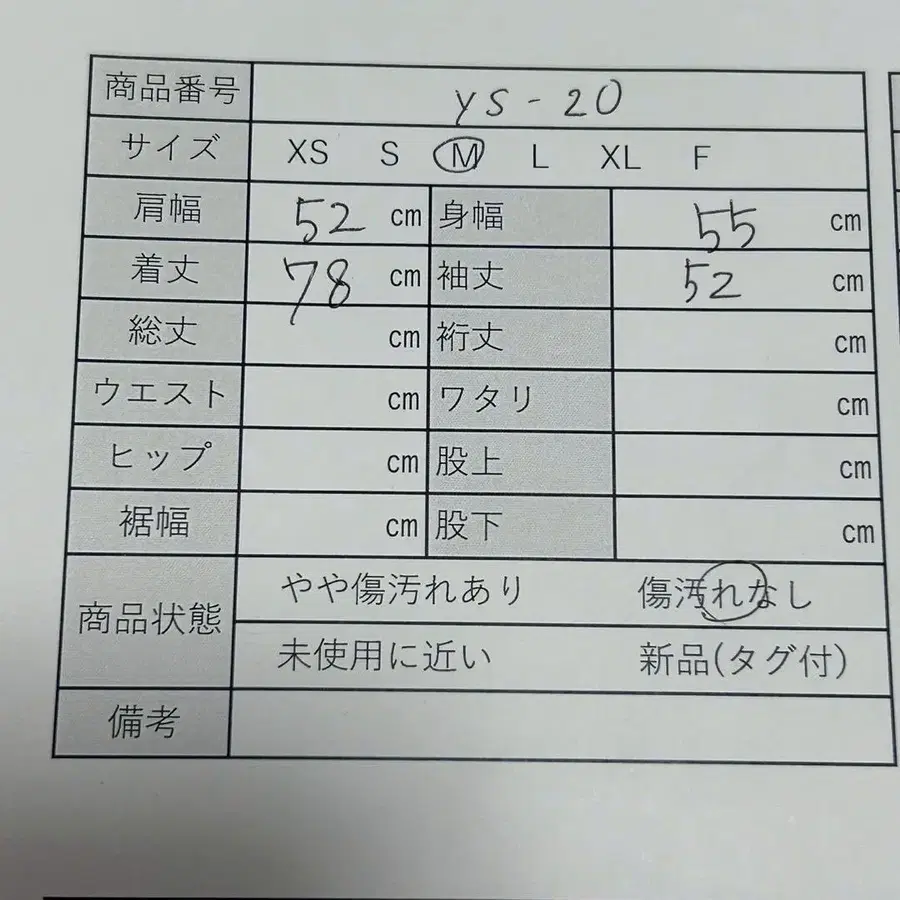 商品番号 YS-20
サイズ XS S M L XL F
肩幅 52 cm 身幅 55 cm
着丈 78 cm 袖丈 52 cm
総丈 cm 裄丈 cm
ウエスト cm ワタリ cm
ヒップ cm 股上 cm
裾幅 cm 股下 cm
商品状態 やや傷汚れあり 傷汚れなし
未使用に近い 新品(タグ付)
備考